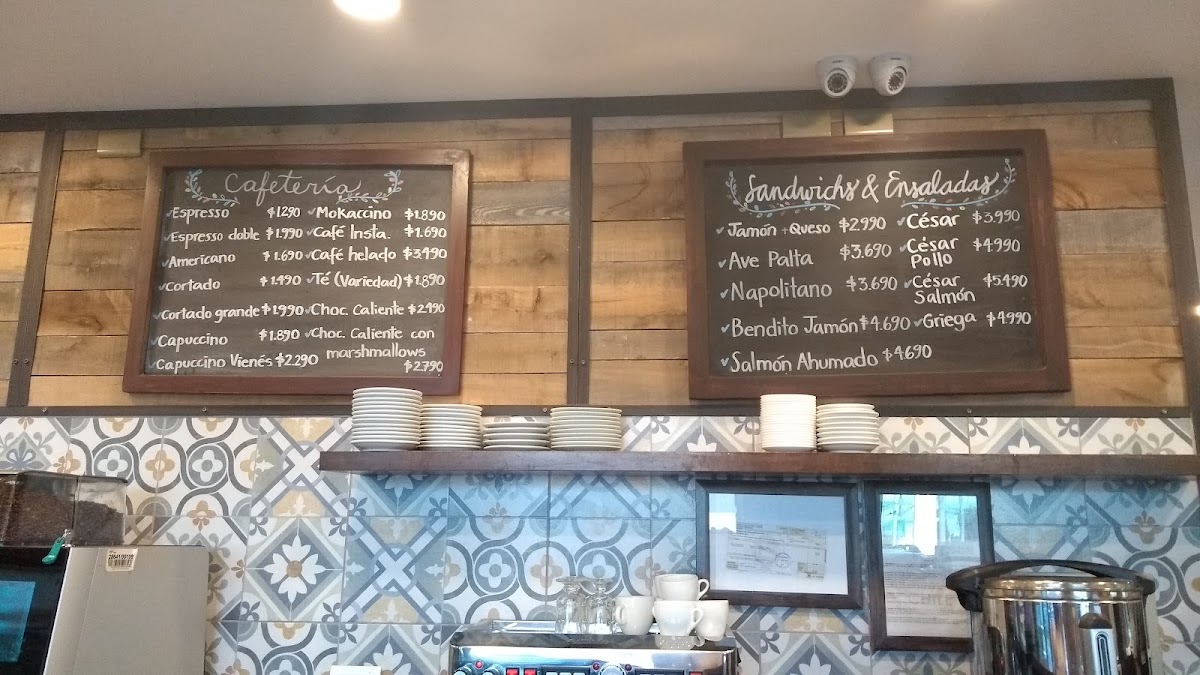 Cafetería
✓Espresso $1290
✓Espresso doble $1.990
✓Americano $1.690
✓Cortado $1.490
✓Cortado grande $1.990
✓Capuccino $1.890
✓Capuccino Vienés $2.290
✓Mokaccino $1.890
✓Café Insta. $1.690
✓Café helado $3.490
✓Té (Variedad) $1.890
✓Choc. Caliente $2.490
✓Choc. Caliente con
marshmallows
$2.790
Sandwichs & Ensaladas
✓Jamón + Queso $2.990
✓Ave Palta $3.690
✓Napolitano $3.690
✓Bendito Jamón $4.690
✓Salmón Ahumado $4.690
✓César $3.990
✓César $4.990
Pollo
✓César $5.490
Salmón
✓Griega $4.990